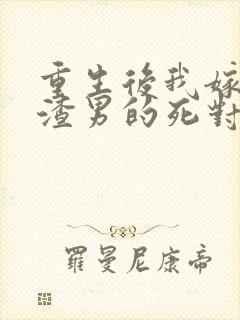 重生後我嫁
渣男的死對
羅曼尼康帝